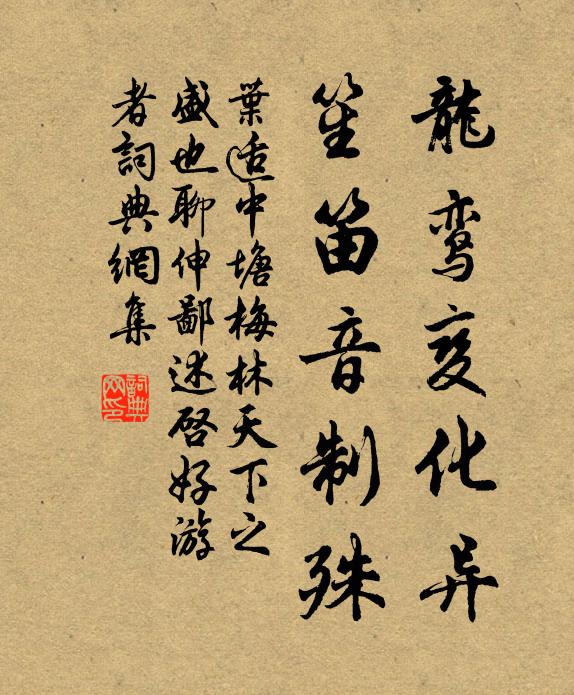 龍鸾变化异
笙笛音制殊
葉适中塘梅林天下之
盛也聊伸鄙述启好游
者詞典網集
詞典网印